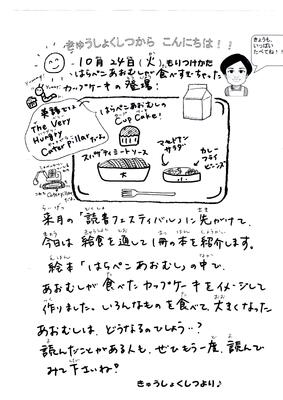 きゅうしょくしつから こんにちは！！
きょうも、
いっぱい
たべてね！！
10月24日(火) もりつけかた
はらぺこあおむしが食べすぎちゃった
カップケーキの登場！
Yummy!
Yummy!
英語では
The Very
Hungry
Caterpillar だよ。
はらぺこあおむしの
Cup Cake!
スパゲティミートソース
マカロニ
サラダ
カレー
フライ
ビーンズ
来月の「読書フェスティバル」に先がけて、
今日は給食を通して1冊の本を紹介します。
絵本「はらぺこあおむし」の中で、
あおむしが食べたカップケーキをイメージして
作りました。いろんなものを食べて、大きくなった
あおむしは、どうなるのでしょう…？
読んだことがある人も、ぜひもう一度、読んで
みて下さいね！
きゅうしょくしつより♪